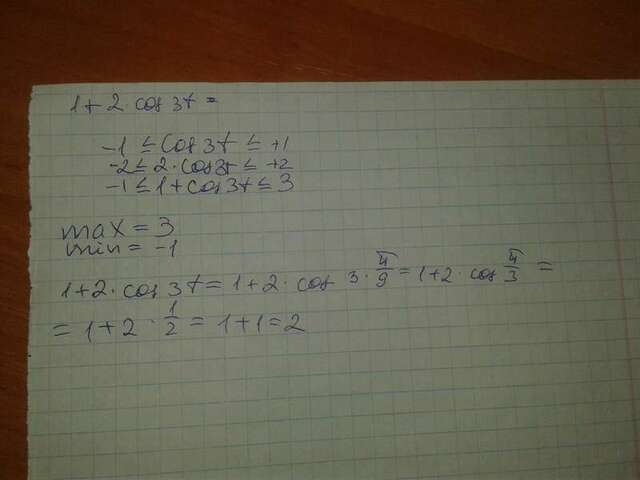 1+2·cos 3t =
-1 ≤ cos 3t ≤ +1
-2 ≤ 2·cos3t ≤ +2
-1 ≤ 1+cos3t ≤ 3
max = 3
min = -1
1+2·cos 3t = 1+2·cos 3·π/9 = 1+2·cos π/3 =
= 1+2·1/2 = 1+1=2